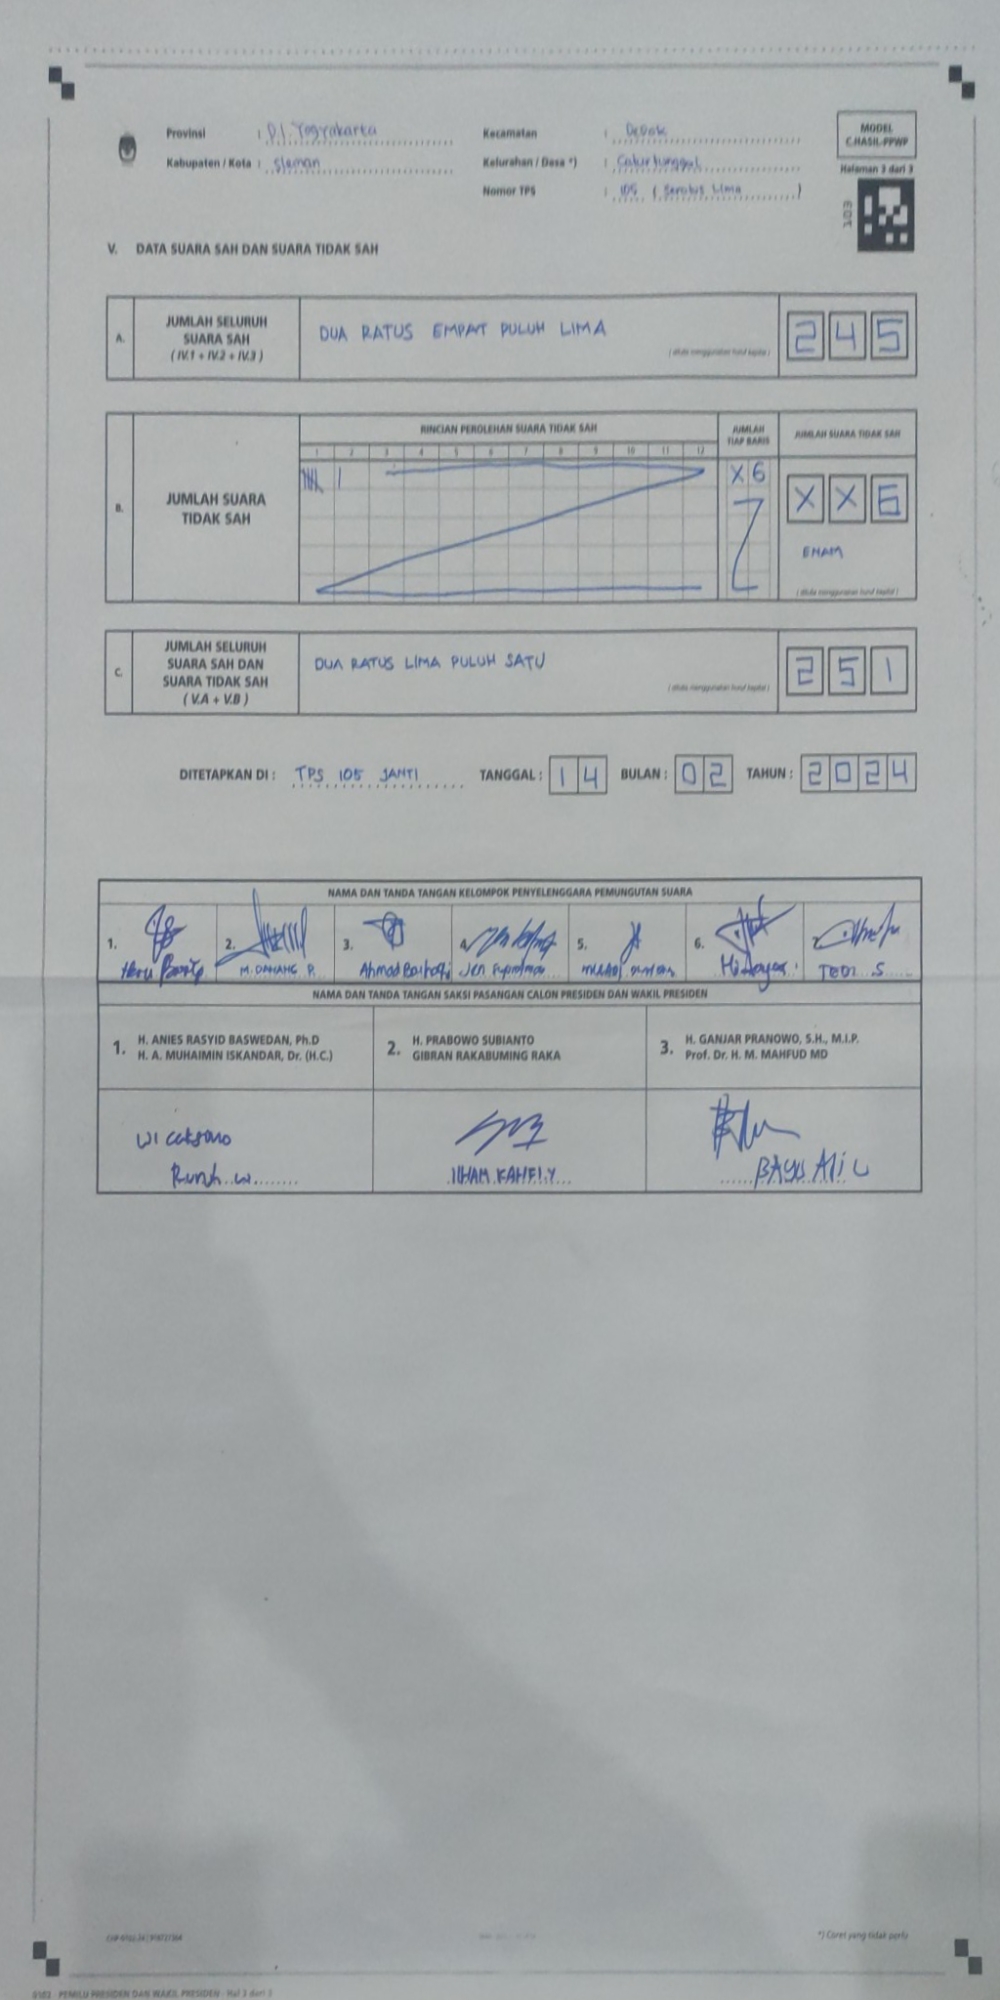 Provinsi : D.I. Yogyakarta
Kabupaten / Kota : Sleman
Kecamatan : Depok
Kelurahan / Desa *) : Caturtunggal
Nomor TPS : 105 ( Seratus Lima )
MODEL
C.HASIL-PPWP
Halaman 3 dari 3
103
V. DATA SUARA SAH DAN SUARA TIDAK SAH
A. JUMLAH SELURUH
SUARA SAH
( IV.1 + IV.2 + IV.3 )
DUA RATUS EMPAT PULUH LIMA
( ditulis menggunakan huruf kapital )
2 4 5
B. JUMLAH SUARA
TIDAK SAH
RINCIAN PEROLEHAN SUARA TIDAK SAH
1 2 3 4 5 6 7 8 9 10 11 12
JUMLAH
TIAP BARIS
X 6
JUMLAH SUARA TIDAK SAH
X X 6
ENAM
( ditulis menggunakan huruf kapital )
C. JUMLAH SELURUH
SUARA SAH DAN
SUARA TIDAK SAH
( V.A + V.B )
DUA RATUS LIMA PULUH SATU
( ditulis menggunakan huruf kapital )
2 5 1
DITETAPKAN DI : TPS 105 JANTI TANGGAL : 14 BULAN : 02 TAHUN : 2024
NAMA DAN TANDA TANGAN KELOMPOK PENYELENGGARA PEMUNGUTAN SUARA
1. 2. 3. 4. 5. 6. 7.
M. DANANG P. Ahmad Jen Hidayat TEDI S
NAMA DAN TANDA TANGAN SAKSI PASANGAN CALON PRESIDEN DAN WAKIL PRESIDEN
1. H. ANIES RASYID BASWEDAN, Ph.D
H. A. MUHAIMIN ISKANDAR, Dr. (H.C.)
2. H. PRABOWO SUBIANTO
GIBRAN RAKABUMING RAKA
3. H. GANJAR PRANOWO, S.H., M.I.P.
Prof. Dr. H. M. MAHFUD MD
ILHAM KAHFI.Y
BAGUS
*) Coret yang tidak perlu
0103 PEMILU PRESIDEN DAN WAKIL PRESIDEN - Hal 3 dari 3